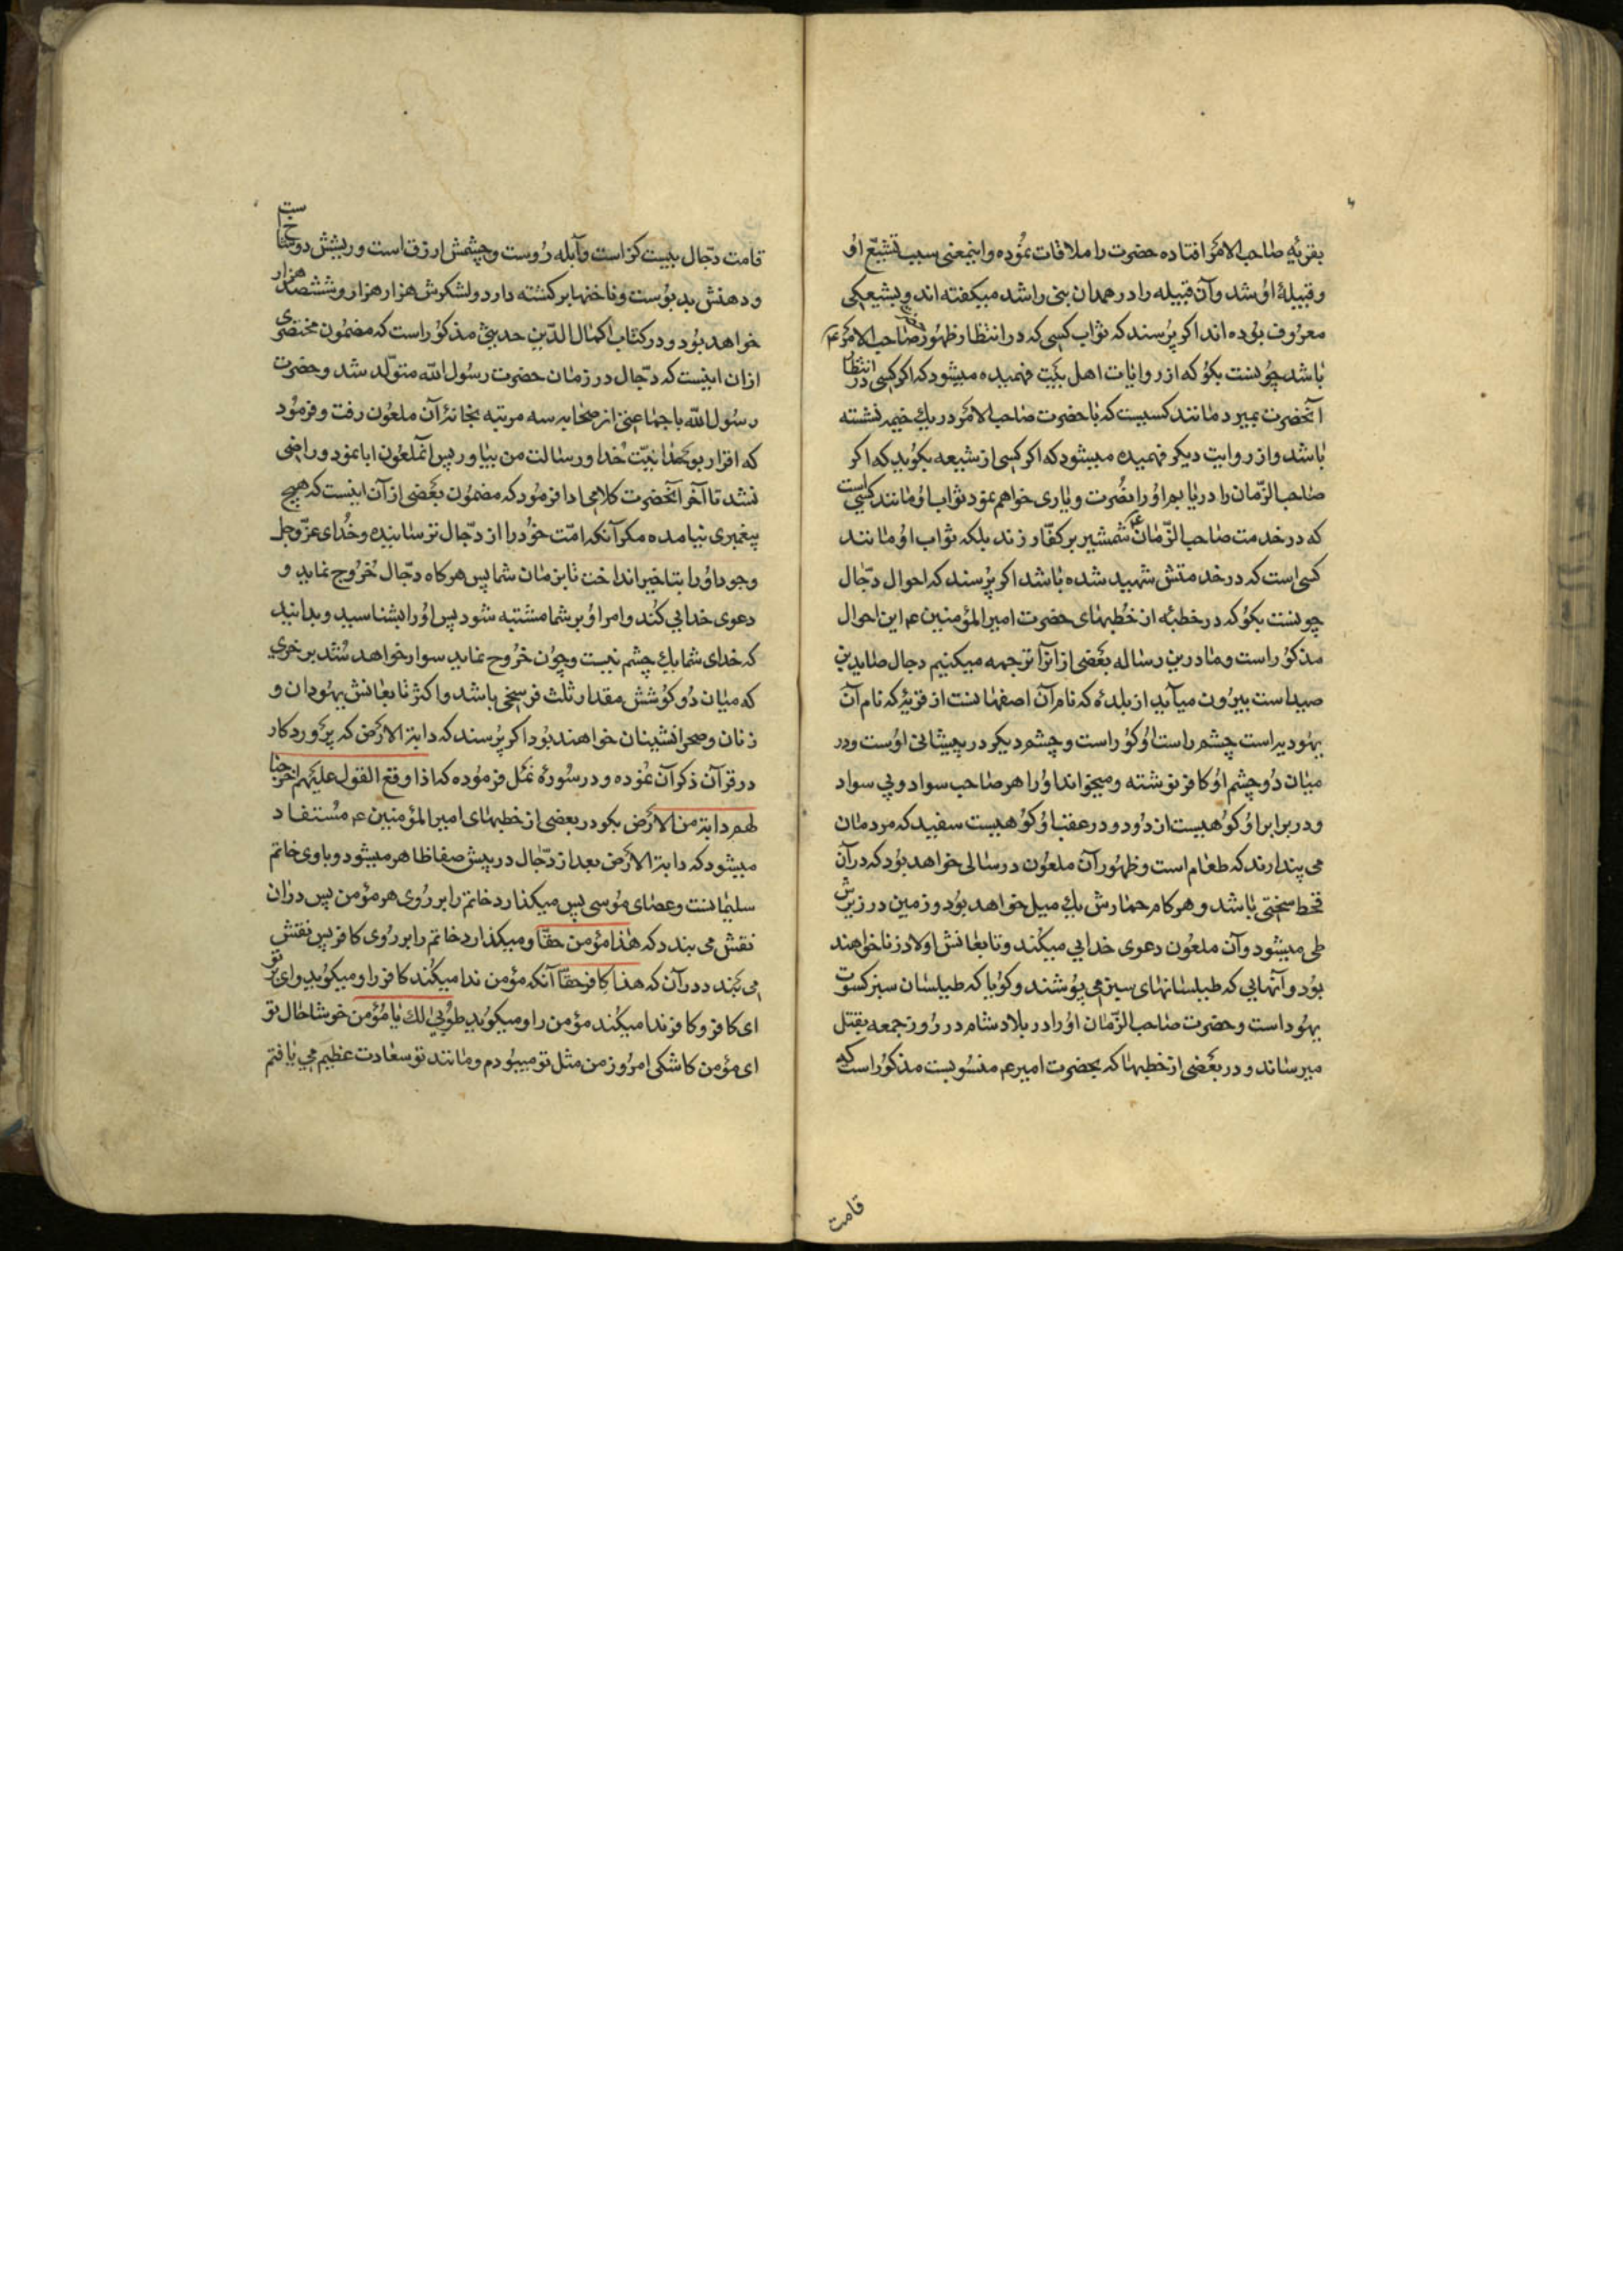 بقریهٔ صاحب الامر افتاده حضرت را ملاقات نموده و اینمعنی سبب تشیّع او
و قبیلهٔ او شد و آن قبیله را در همدان بنی راشد میکفته اند و بشیعیکی
معروف بوده اند اکر پرسند که ثواب کسی که در انتظار ظهور صاحب الامر ع
باشد چونست بکو که از روایات اهل بیت فهمیده میشود که اکر کسی در انتظار
آنحضرت بمیرد مانند کسیست که با حضرت صاحب الامر در یک خیمه نشسته
باشد و از روایت دیکر فهمیده میشود که اکر کسی از شیعه بکوید که اکر
صاحب الزّمان را دریابم او را نصرت و یاری خواهم نمود ثواب او مانند کسی است
که در خدمت صاحب الزّمان ع شمشیر بر کفّار زند بلکه ثواب او مانند
کسی است که در خدمتش شهید شده باشد اکر پرسند که احوال دجّال
چونست بکو که در خطبهٔ از خطبهای حضرت امیر المؤمنین ع این احوال
مذکور است و ما درین رساله بعضی از آنرا ترجمه میکنیم دجال صاید بن
صید است بیرون میآید از بلدهٔ که نام آن اصفهانست از قریهٔ که نام آن
یهودیه است چشم راست او کور است و چشم دیکر در پیشانی اوست و در
میان دو چشم او کافر نوشته و میخواند او را هر صاحب سواد و بی سواد
و در برابر او کوهیست از دود و در عقب او کوهیست سفید که مردمان
می پندارند که طعام است و ظهور آن ملعون در سالی خواهد بود که در آن
قحط سختی باشد و هر کام حمارش یک میل خواهد بود و زمین در زیرش
طی میشود و آن ملعون دعوی خدایی میکند و تابعانش اولاد زنا خواهند
بود و آنهایی که طیلسانهای سبز می پوشند و کویا که طیلسان سبز کسوت
یهود است و حضرت صاحب الزّمان او را در بلاد شام در روز جمعه بقتل
میرساند و در بعضی از خطبها که بحضرت امیر ع منسوبست مذکور است که
قامت
قامت دجّال بیست کز است و آبله روست و چشمش ازرق است و ریشش دو شاخ است
و دهنش بد بوست و ناخنها برکشته دارد و لشکرش هزار هزار و ششصد هزار
خواهد بود و در کتاب اکمال الدّین حدیثی مذکور است که مضمون مختصری
از ان اینست که دجّال در زمان حضرت رسول الله متولّد شد و حضرت
رسول الله با جماعتی از صحابه سه مرتبه بخانهٔ آن ملعون رفت و فرمود
که اقرار بوحدانیّت خدا و رسالت من بیاور پس آنملعون ابا نمود و راضی
نشد تا آخر آنحضرت کلامی ادا فرمود که مضمون بعضی از آن اینست که هیچ
پیغمبری نیامده مکر آنکه امّت خود را از دجّال ترسانیده و خدای عزّ و جل
وجود او را بتاخیر انداخت تا بزمان شما پس هرکاه دجّال خروج نماید و
دعوی خدایی کند و امر او بر شما مشتبه شود پس او را بشناسید و بدانید
که خدای شما یک چشم نیست و چون خروج نماید سوار خواهد شد بر خری
که میان دو کوشش مقدار ثلث فرسخی باشد و اکثر تابعانش یهودان و
زنان و صحرانشینان خواهند بود اکر پرسند که دابة الارض که پروردکار
در قرآن ذکر آن نموده و در سورهٔ نمل فرموده که اذا وقع القول علیهم اخرجنا
لهم دابة من الارض بکو در بعضی از خطبهای امیر المؤمنین ع مستفاد
میشود که دابة الارض بعد از دجّال در پیش صفا ظاهر میشود و با وی خاتم
سلیمانست و عصای موسی پس میکذارد خاتم را بر روی هر مؤمن پس در ان
نقش می بندد که هذا مؤمن حقّا و میکذارد خاتم را بر روی کافر پس نقش
می بندد در آن که هذا کافر حقّا آنکه مؤمن ندا میکند کافر را و میکوید وای بر تو
ای کافر و کافر ندا میکند مؤمن را و میکوید طوبی لک یا مؤمن خوشا حال تو
ای مؤمن کاشکی امروز من مثل تو میبودم و مانند تو سعادت عظیم می یافتم